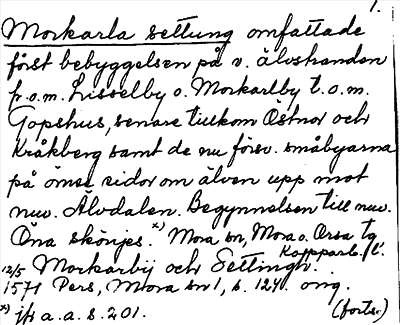 1.
Morkarla settung omfattade
först bebyggelsen på v. älvstranden
fr.o.m. Lisselby o. Morkarlby t.o.m.
Gopshus, senare tillkom Östnor och
Kråkberg samt de nu försv. småbyarna
på ömse sidor om älven upp mot
nuv. Älvdalen. Begynnelsen till nuv.
Öna skönjes. x) Mora sn, Mora o. Orsa tg
Kopparb. l.
12/5 Morkarby och Settingh.
1571 Pers, Mora sn 1, s. 124. orig.
x) jfr a.a. s. 201. (forts.)